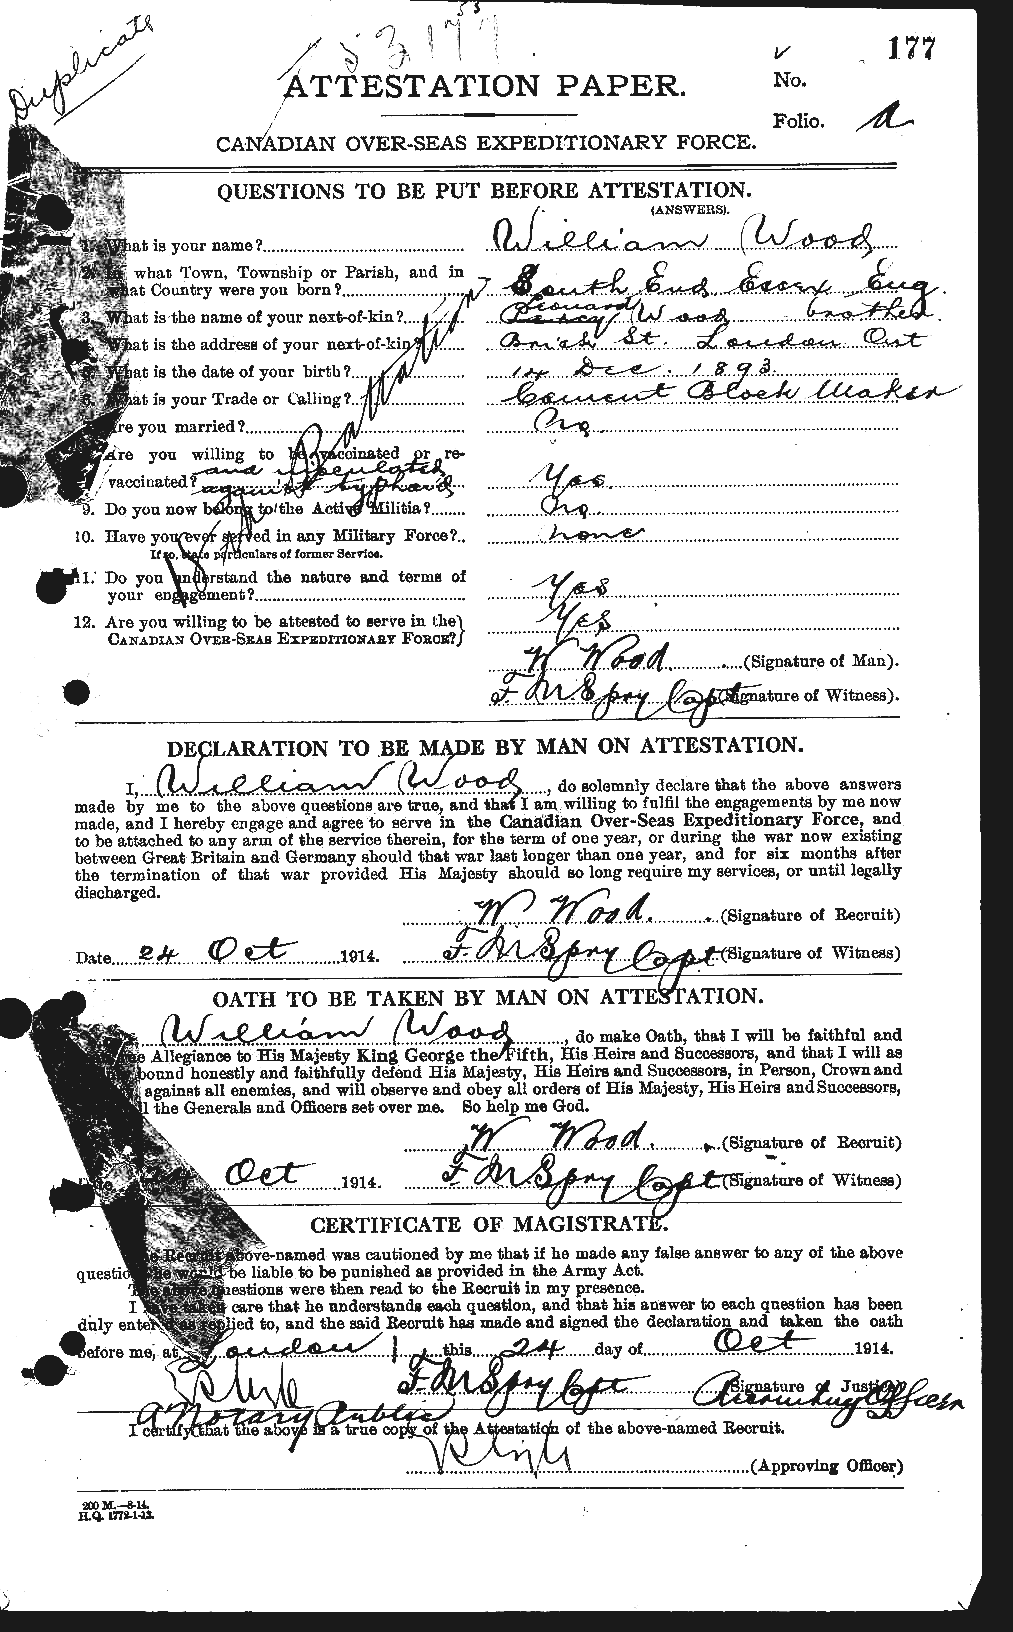 Duplicate
53177
177
No.
Folio. a
ATTESTATION PAPER.
CANADIAN OVER-SEAS EXPEDITIONARY FORCE.
QUESTIONS TO BE PUT BEFORE ATTESTATION.
(ANSWERS).
1. What is your name? William Wood
2. In what Town, Township or Parish, and in
what Country were you born? South End Essex Eng.
3. What is the name of your next-of-kin? Leonard Wood brother
What is the address of your next-of-kin? St. London Ont
What is the date of your birth? 14 Dec. 1893
6. What is your Trade or Calling? Cement Block Maker
Are you married? No.
Are you willing to be vaccinated or re-
vaccinated? and inoculated against typhoid Yes.
9. Do you now belong to the Active Militia? No.
10. Have you ever served in any Military Force? none
If so, state particulars of former Service.
11. Do you understand the nature and terms of
your engagement? Yes
12. Are you willing to be attested to serve in the
CANADIAN OVER-SEAS EXPEDITIONARY FORCE? Yes
W Wood (Signature of Man).
F M Spry Capt (Signature of Witness).
DECLARATION TO BE MADE BY MAN ON ATTESTATION.
I, William Wood, do solemnly declare that the above answers
made by me to the above questions are true, and that I am willing to fulfil the engagements by me now
made, and I hereby engage and agree to serve in the Canadian Over-Seas Expeditionary Force, and
to be attached to any arm of the service therein, for the term of one year, or during the war now existing
between Great Britain and Germany should that war last longer than one year, and for six months after
the termination of that war provided His Majesty should so long require my services, or until legally
discharged.
W Wood. (Signature of Recruit)
Date 24 Oct 1914. F. M Spry Capt (Signature of Witness)
OATH TO BE TAKEN BY MAN ON ATTESTATION.
William Wood, do make Oath, that I will be faithful and
Allegiance to His Majesty King George the Fifth, His Heirs and Successors, and that I will as
bound honestly and faithfully defend His Majesty, His Heirs and Successors, in Person, Crown and
against all enemies, and will observe and obey all orders of His Majesty, His Heirs and Successors,
the Generals and Officers set over me. So help me God.
W Wood. (Signature of Recruit)
Oct 1914. F. M Spry Capt (Signature of Witness)
CERTIFICATE OF MAGISTRATE.
The Recruit above-named was cautioned by me that if he made any false answer to any of the above
questions he would be liable to be punished as provided in the Army Act.
The above questions were then read to the Recruit in my presence.
I have taken care that he understands each question, and that his answer to each question has been
duly entered as replied to, and the said Recruit has made and signed the declaration and taken the oath
before me, at London this 24 day of Oct 1914.
F. M Spry Capt Recruiting Officer (Signature of Justice)
A Notary Public
I certify that the above is a true copy of the Attestation of the above-named Recruit.
(Approving Officer)
200 M.—8-14.
H.Q. 1772-1-13.